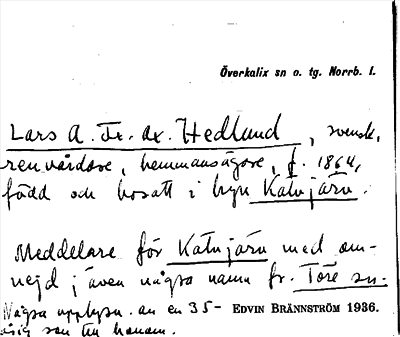 Överkalix sn o. tg. Norrb. l.
Lars A. Fr. av. Hedlund, svensk,
renvårdare, hemmansägare, f. 1864,
född och bosatt i byn Katujärv.
Meddelare för Katujärv med om-
nejd; även några namn fr. Töre sn.
Några upplysn. av en 35-
EDVIN BRÄNNSTRÖM 1936.
årig son till honom.